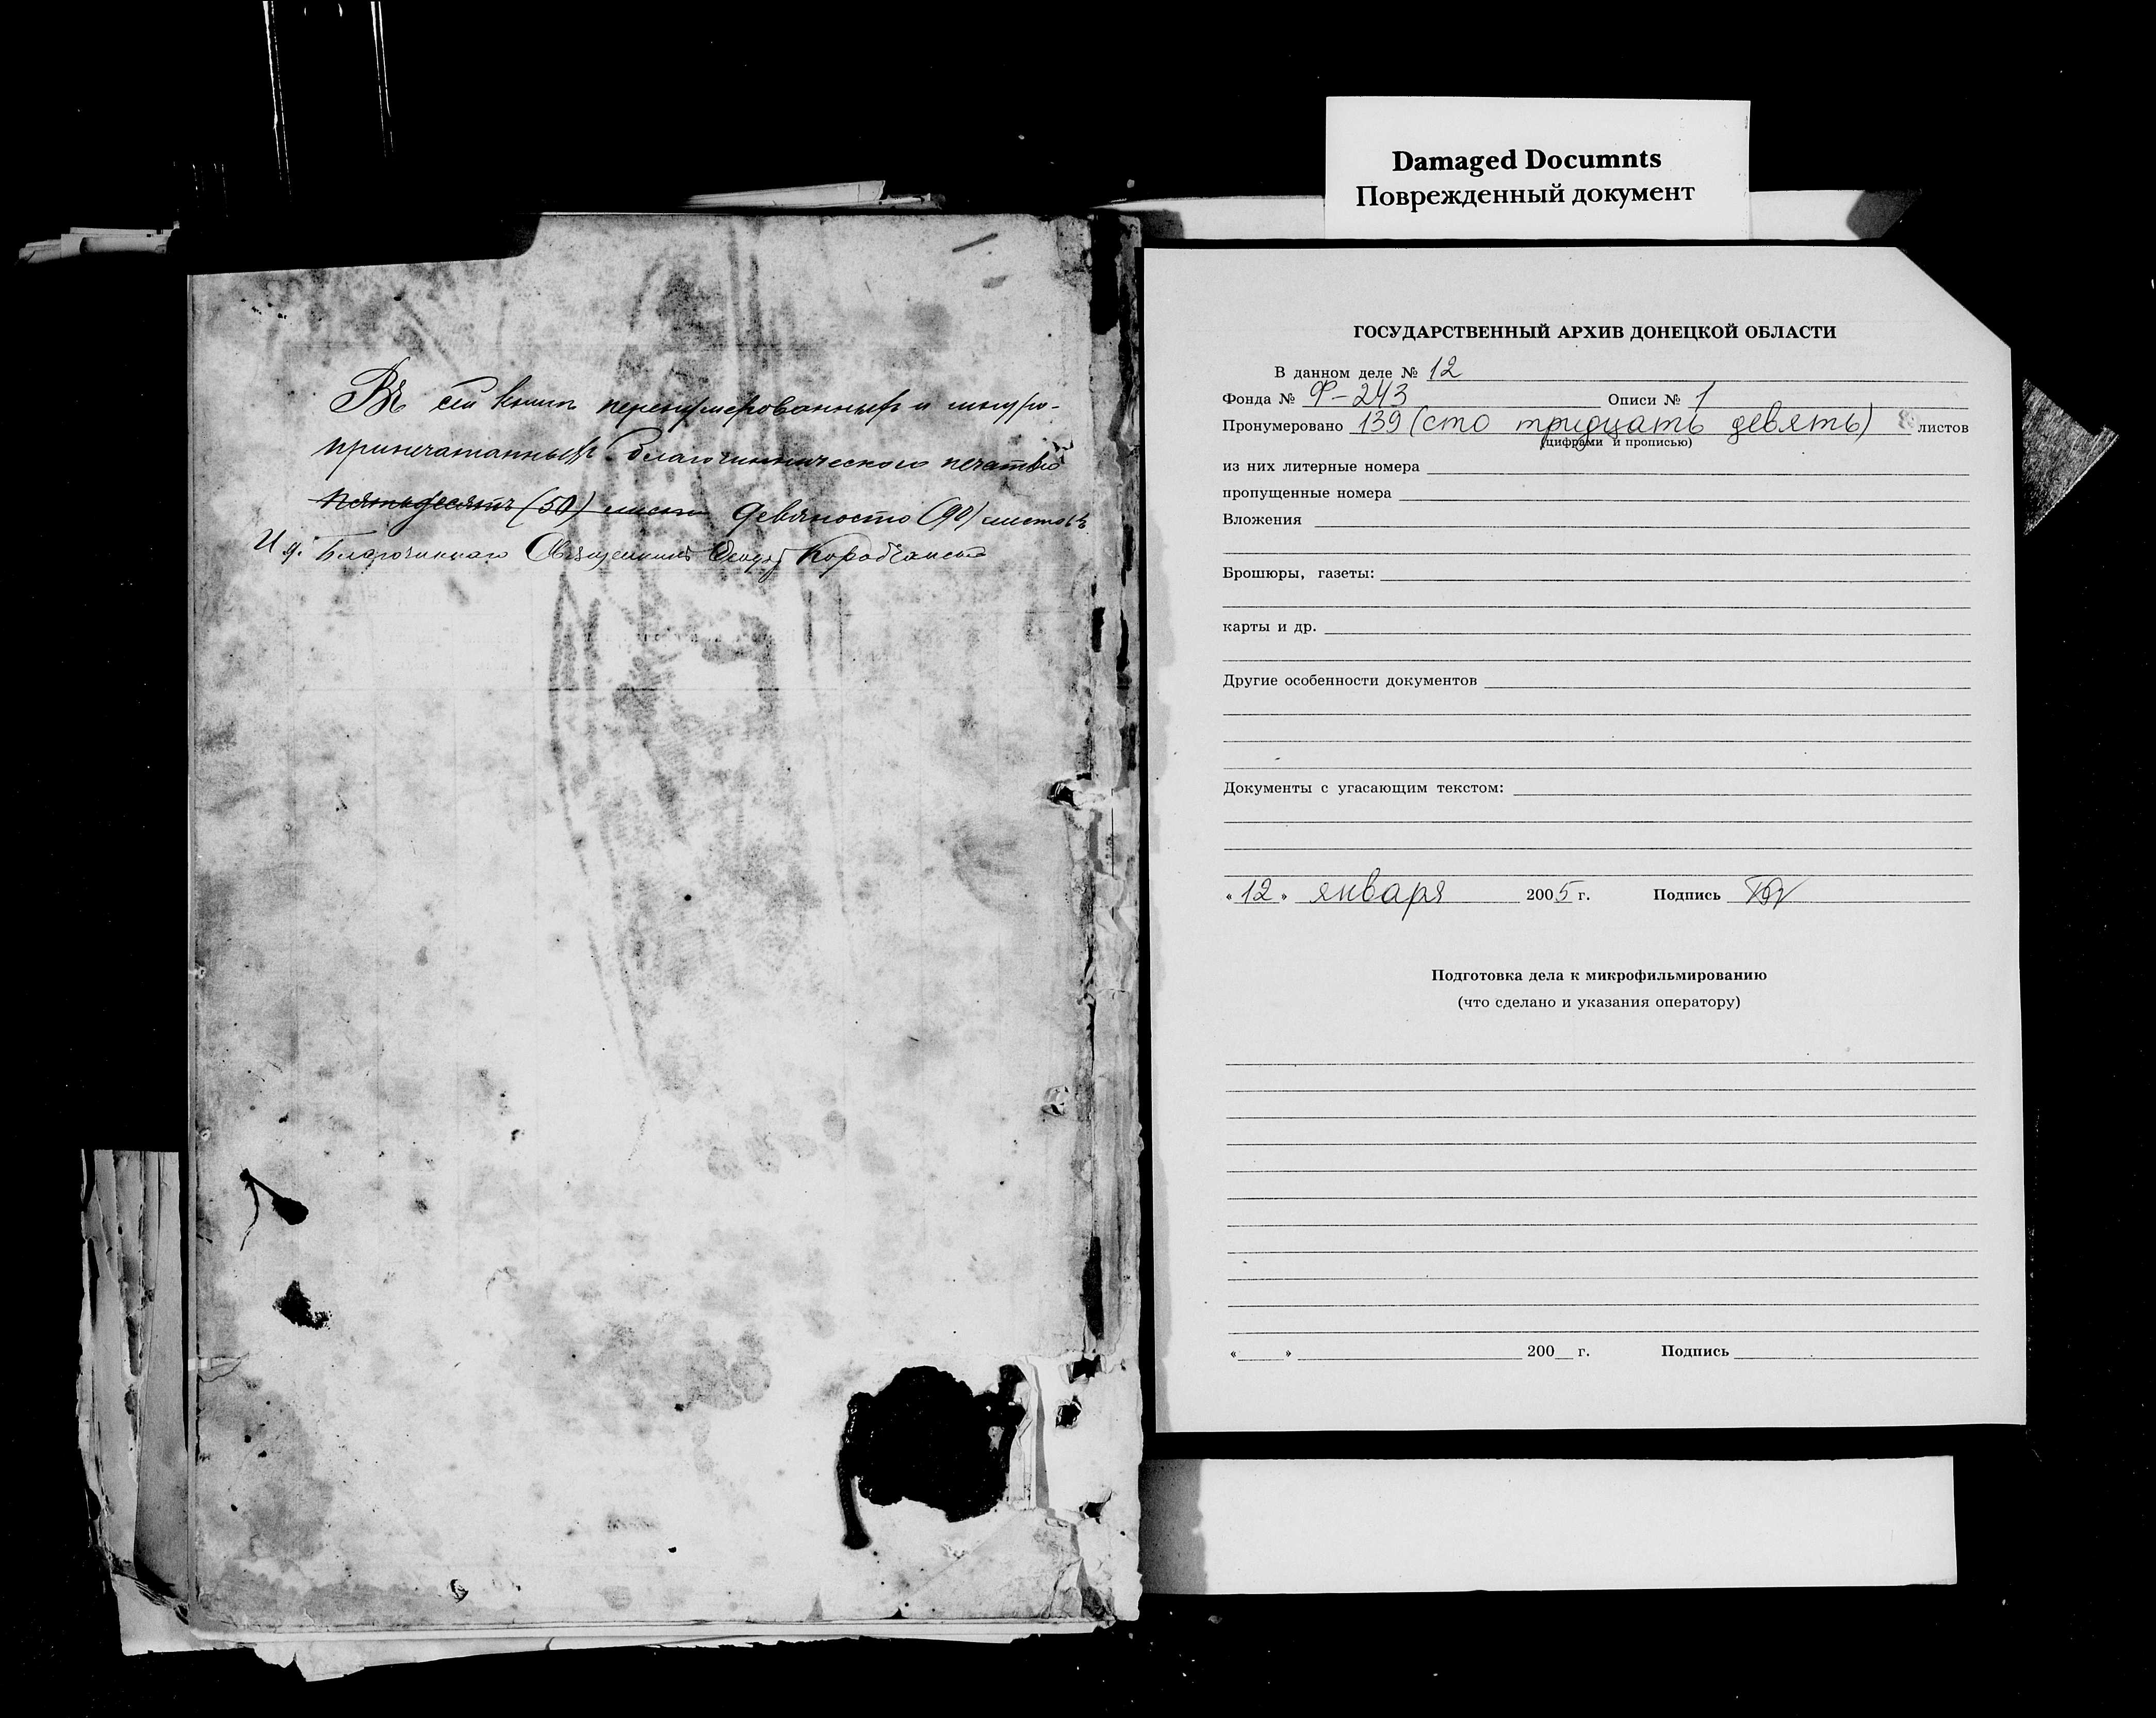 Damaged Documnts
Поврежденный документ
Въ сей книгѣ перенумерованныхъ и шнуро-
припечатанныхъ благочинническою печатью
пятьдесятъ (50) листъ девяносто (90) листовъ
И д. Благочиннаго Священникъ
ГОСУДАРСТВЕННЫЙ АРХИВ ДОНЕЦКОЙ ОБЛАСТИ
В данном деле № 12
Фонда № Ф-243 Описи № 1
Пронумеровано 139 (сто тридцать девять) листов
(цифрами и прописью)
из них литерные номера
пропущенные номера
Вложения
Брошюры, газеты:
карты и др.
Другие особенности документов
Документы с угасающим текстом:
«12» января 2005 г. Подпись
Подготовка дела к микрофильмированию
(что сделано и указания оператору)
« » 200 г. Подпись